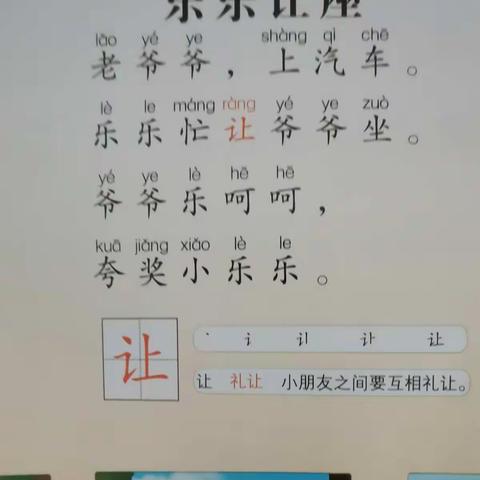 乐乐让座
lǎo yé ye shàng qì chē
老爷爷，上汽车。
lè le máng ràng yé ye zuò
乐乐忙让爷爷坐。
yé ye lè hē hē
爷爷乐呵呵，
kuā jiǎng xiǎo lè le
夸奖小乐乐。
让
让 礼让 小朋友之间要互相礼让。